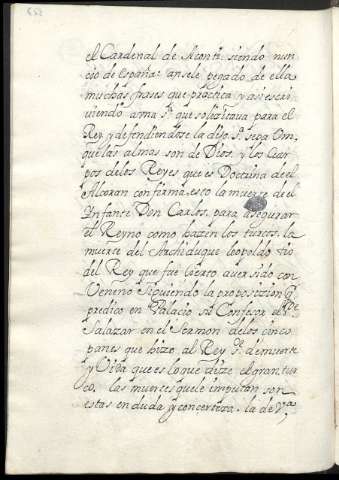 el Cardenal de Monti siendo nun
cio de españa: an sele pegado de ella
muchas frases que practica y asi escri
uiendo a que solizitaua para el
Rey y defendiendose la dijo
que las almas son de Dios, y los Cuer
pos de los Reyes que es Doctrina de el
Alcoran confirma esto la muerte de el
Infante Don Carlos, para asegurar
el Reyno como hazen los turcos, la
muerte del Archiduque leopoldo tio
del Rey que fue cierto auer sido con
Veneno siguiendo la proposizion q
predico en Palacio su Confesor el Pe
Salazar en el Sermon de los cinco
panes que hizo al Rey de muerte
y Vida que es lo que dize el gran tur
co, las muertes que le imputan son
estas en duda y con certeza, la de